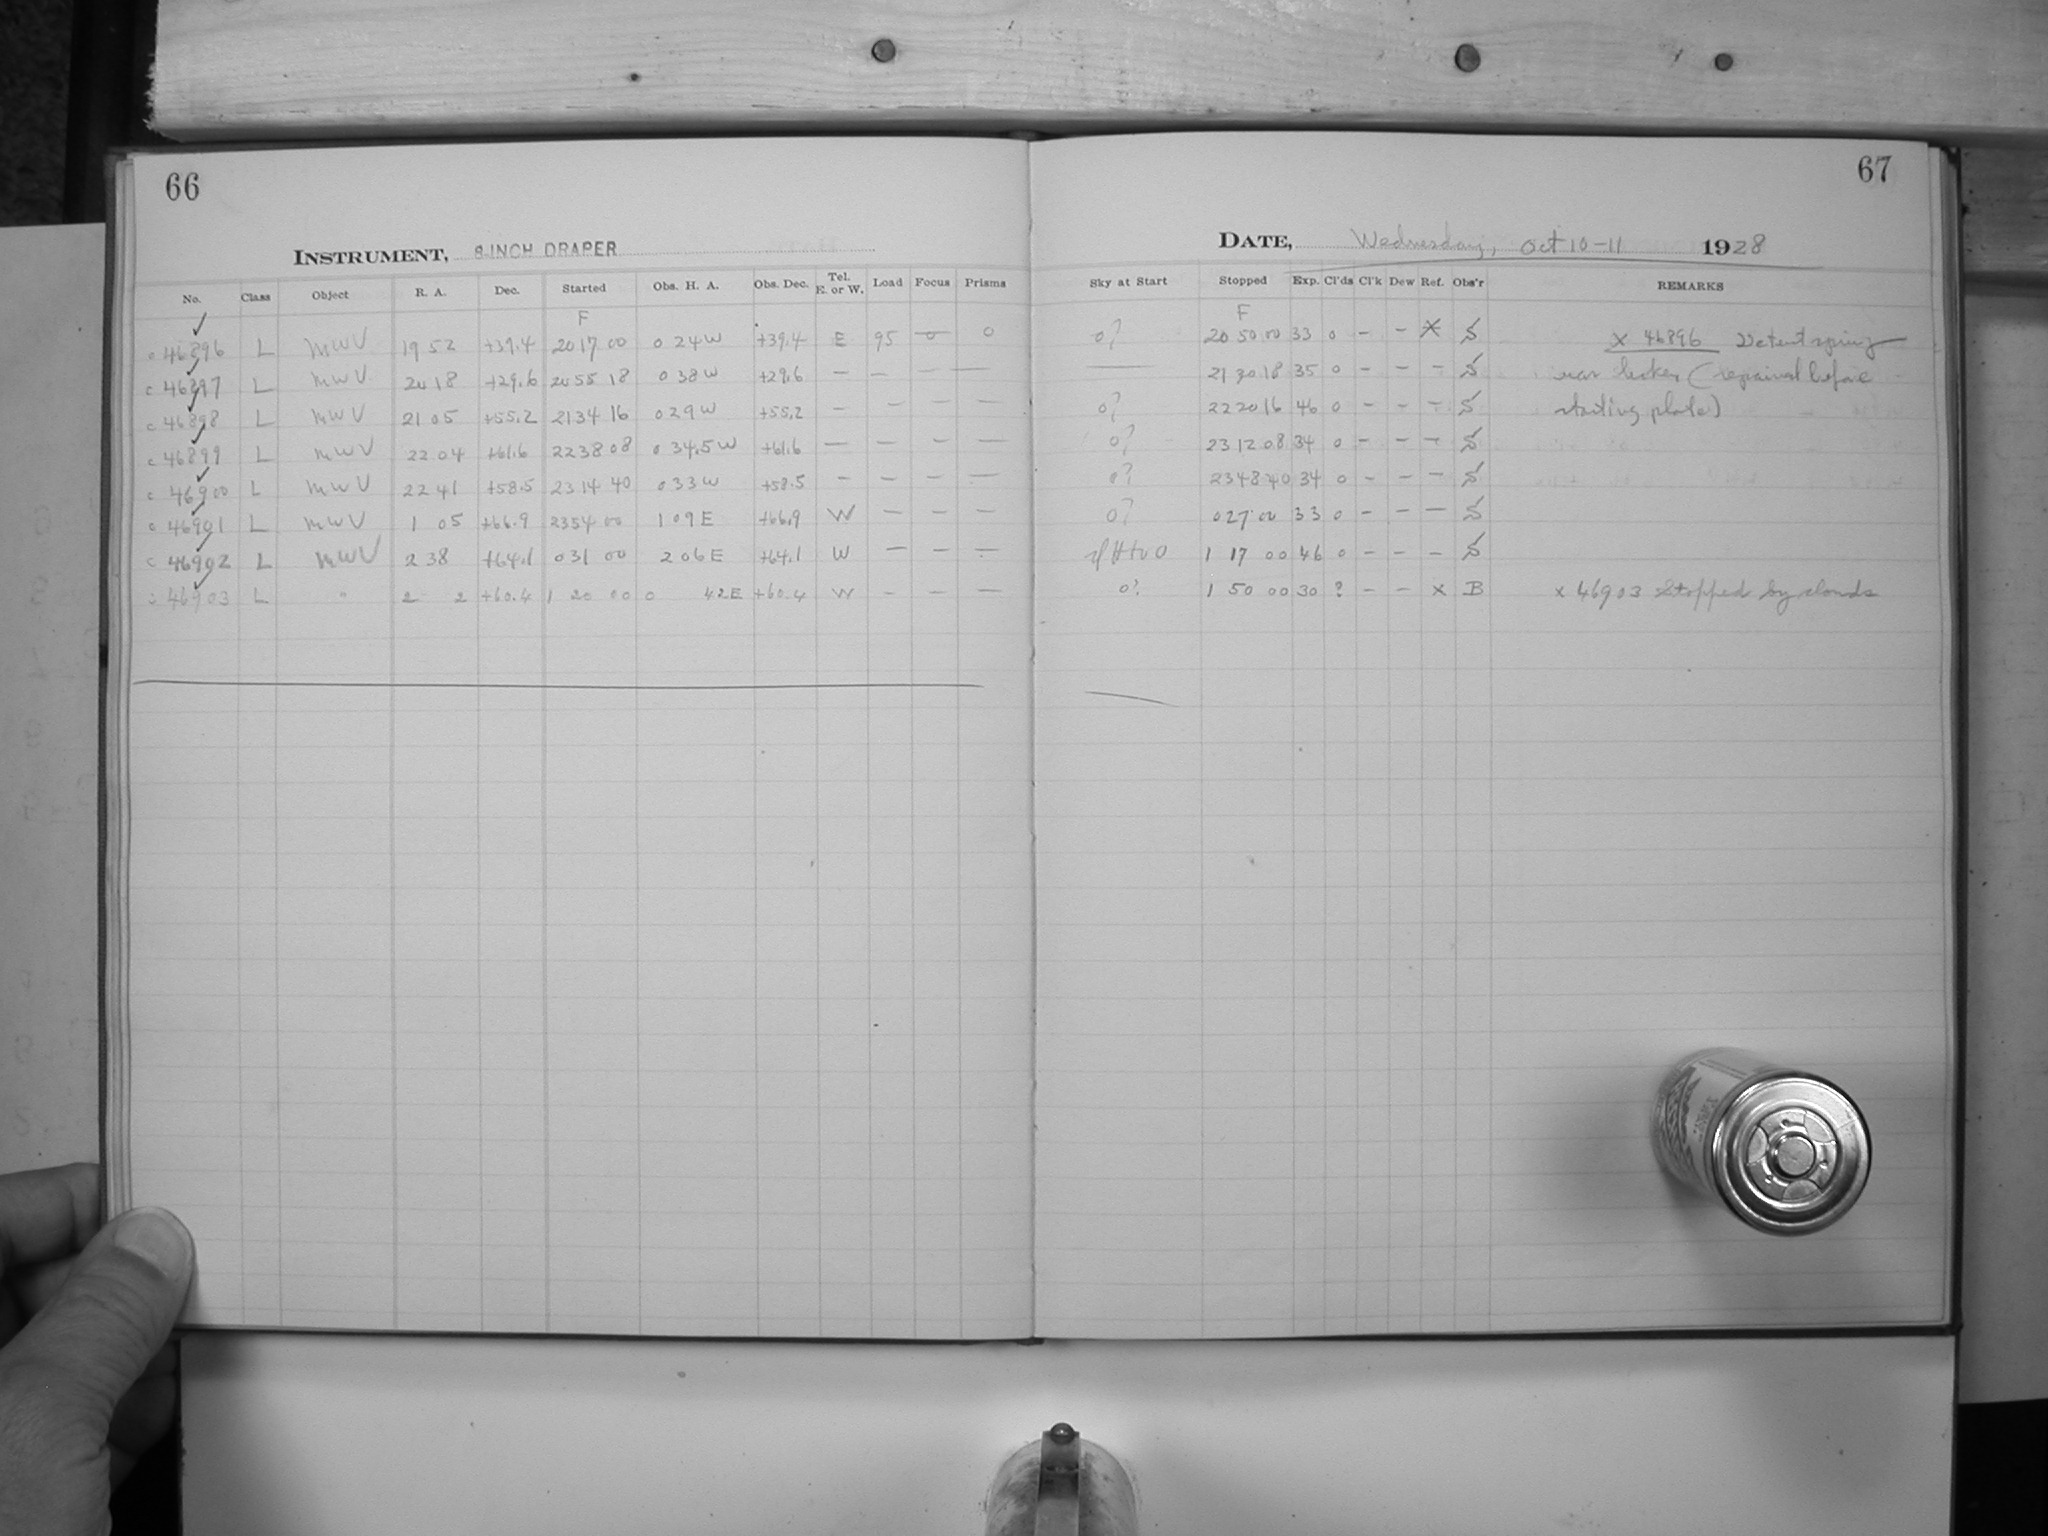 66
INSTRUMENT, 8-INCH DRAPER
No. Class Object R. A. Dec. Started Obs. H. A. Obs. Dec. Tel. E. or W. Load Focus Prisms
F
c 46896 L MWV 19 52 +39.4 20 17 00 0 24 W +39.4 E 95 0 0
c 46897 L MWV 20 18 +29.6 20 55 18 0 38 W +29.6 — — — —
c 46898 L MWV 21 05 +55.2 21 34 16 0 29 W +55.2 — — — —
c 46899 L MWV 22 04 +61.6 22 38 08 0 34.5 W +61.6 — — — —
c 46900 L MWV 22 41 +58.5 23 14 40 0 33 W +58.5 — — — —
c 46901 L MWV 1 05 +66.9 23 54 00 1 09 E +66.9 W — — —
c 46902 L MWV 2 38 +64.1 0 31 00 2 06 E +64.1 W — — —
c 46903 L " 2 2 +60.4 1 20 00 0 42 E +60.4 W — — —
67
DATE, Wednesday, Oct 10-11 1928
Sky at Start Stopped Exp. Cl'ds Cl'k Dew Ref. Obs'r REMARKS
F
0? 20 50 00 33 0 — — X S x 46896 Detent spring
— 21 30 18 35 0 — — — S was broken (repaired before
0? 22 20 16 46 0 — — — S starting plate)
0? 23 12 08 34 0 — — — S
0? 23 48 40 34 0 — — — S
0? 0 27 00 33 0 — — — S
1 17 00 46 0 — — — S
0? 1 50 00 30 ? — — x B x 46903 Stopped by clouds